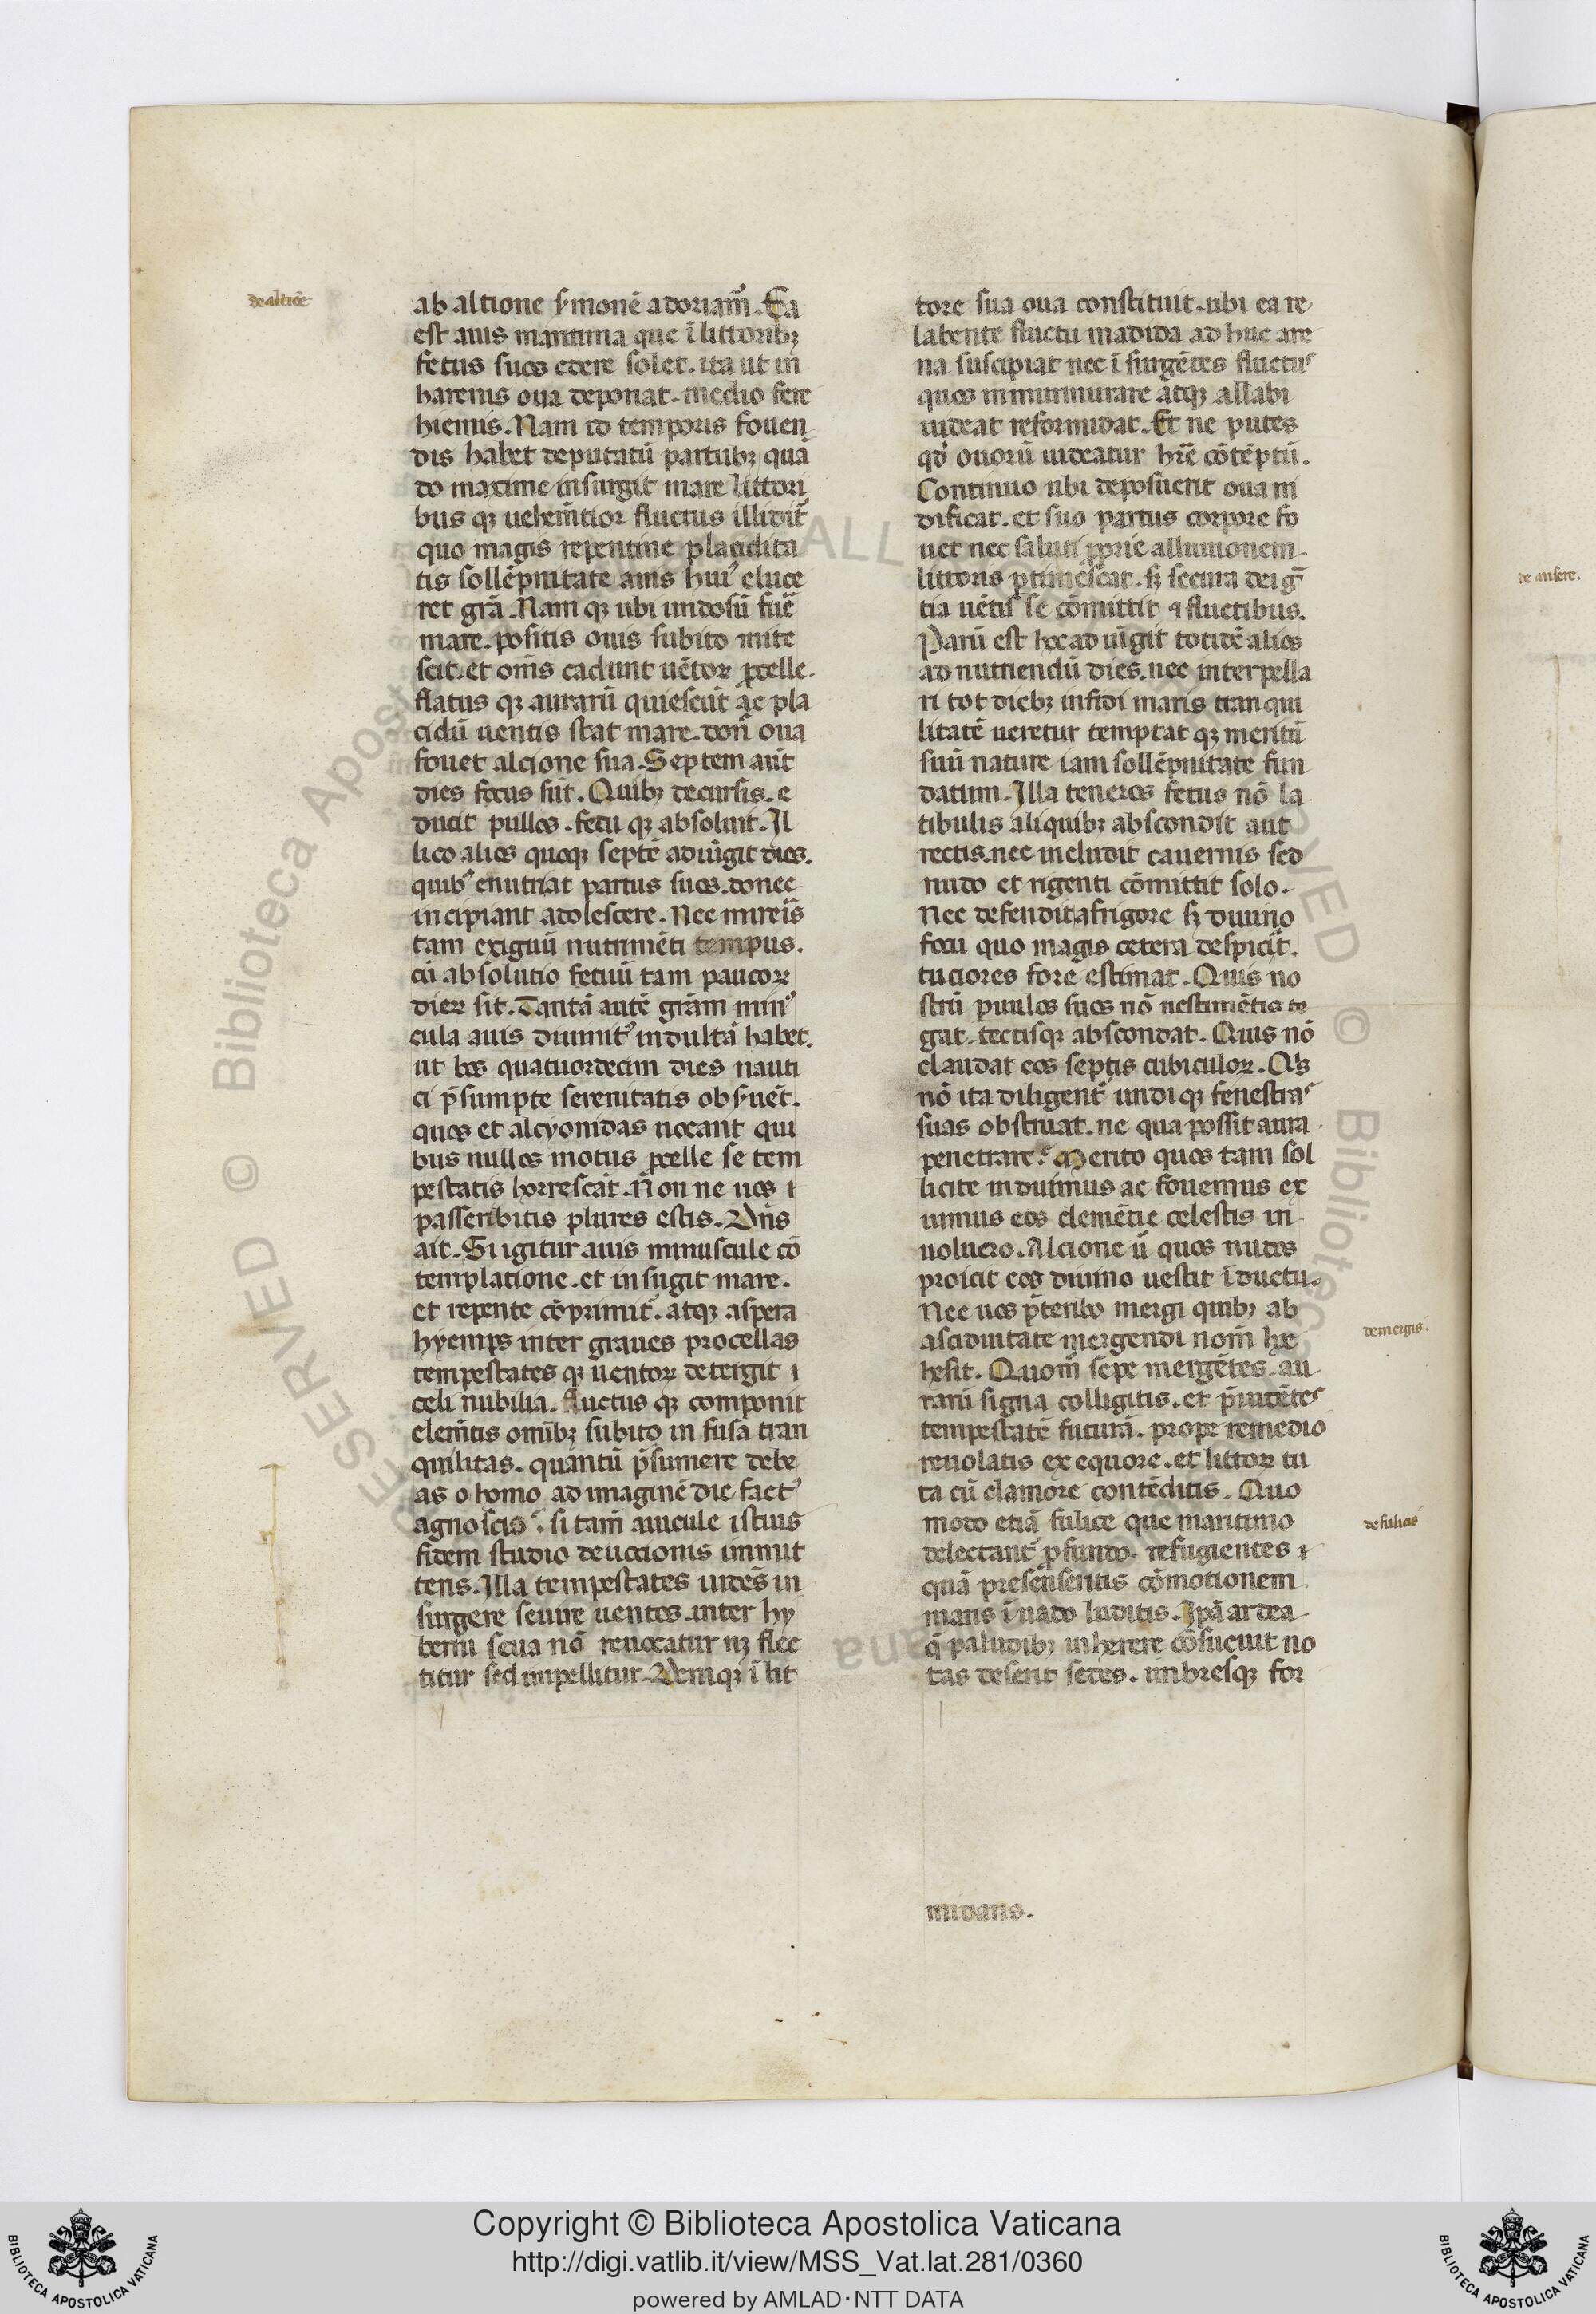 de alcióe
ab altione ẜmonē adoriam̃. Ea
est auis maritima que ĩ littoribꝫ
fetus suos edere solet. ita ut in
harenis oua deponat. medio fere
hiemis. Nam id temporis fouen
dis habet deputatū partubꝫ quā
do maxime insurgit mare littori
bus qꝫ uehem̃tior fluctus illidit᷑
quo magis repentine placidita
tis sollēpnitate auis huiꝰ eluce
ret grã. Nam qꝫ ubi undosū fuẽ
mare. positis ouis subito mite
scit. et om̃s cadunt uētoꝝ ꝓcelle.
flatus qꝫ aurarū quiescūt ac pla
cidū uentis stat mare. don̄ oua
fouet alcione sua. Septem aūt
dies fotus sūt. Quibꝫ decursis. e
ducit pullos. fetu qꝫ absoluit. Il
lico alios quoqꝫ septē adiūgit dies.
quibꝰ enutriat partus suos. donec
incipiant adolescere. Nec mireris
tam exiguū nutrimēti tempus.
cū absolutio fetuū tam paucoꝝ
dieꝝ sit. Tantā autē grãm minꝰ
cula auis diuinitꝰ indultā habet.
ut hos quatuordecim dies nauti
ci p̃sumpte serenitatis obẜuēt.
quos et alcyonidas uocant qui
bus nullos motus ꝓcelle se tem
pestatis horrescāt. Non ne uos ⁊
passeribus plures estis. Dñs
ait. Si igitur auis minuscule cō
templatione. et insugit mare.
et repente cōprimit᷑. atqꝫ aspera
hyemps inter graues procellas
tempestates qꝫ uentoꝝ detergit ⁊
celi nubilia. fluctus qꝫ componit
elem̃tis omībꝫ subito in fusa tran
quilitas. quantū p̃sumere debe
as o homo ad imaginē die factꝰ
agnoscis. si tam̃ auicule istius
fidem studio deuocionis immit
tens. Illa tempestates uidēs in
surgere seuire uentos. inter hy
berni seua nō reuocatur nꝫ flec
titur sed impellitur. Deniqꝫ ĩ lit
tore sua oua constituit. ubi ea re
labente fluctu madida ad huc are
na suscipiat nec ĩ surgētes fluctus
quos inmurmurare atqꝫ allabi
uideat reformidat. Et ne putes
qd̛ ouorū uideatur hr̃e cōtēptū.
Continuo ubi deposuerit oua ni
dificat. et suo partus corpore fo
uet nec saluti ꝓprie alluuionem
littoris ꝑtimescat. sꝫ secura dei gr̃
tia uētis se cōmittit ⁊ fluctibus.
Parū est hoc ad iũgit totidē alios
ad nutriendū dies. nec interpella
ri tot diebꝫ infidi maris tranqui
litatē ueretur temptat qꝫ meritū
suū nature iam sollēpnitate fun
datum. Illa teneros fetus nō la
tibulis aliquibꝫ abscondit aut
tectis. nec includit cauernis sed
nudo et rigenti cōmittit solo.
Nec defendit a frigore sꝫ diuino
fotu quo magis cetera despicit᷑.
tuciores fore estimat. Quis no
strū paulos suos nō uestimētis te
gat. tectisqꝫ abscondat. Quis nō
claudat eos septis cubiculoꝝ. Qꝫ
nō ita diligent᷑ undi qꝫ fenestras
suas obstruat. ne qua possit aura
penetrare. Merito quos tam sol
licite induimus ac fouemus ex
uimus eos clemētie celestis in
uolucro. Alcione ū quos nudos
proicit eos diuino uestit ĩductu.
Nec uos p̃teribo mergi quibꝫ ab
asciduitate mergendi nom̃ hoc
hesit. Quom̃ sepe mergētes. au
rarū signa colligitis. et p̃uidētes
tempestatē futurā. prope remedio
reuolatis ex equore. et littoꝝ tu
ta cū clamore contēditis. Quo
modo etiā fulice que maritimo
delectant᷑ ꝓfundo. refugientes ⁊
quā presenseritis cōmotionem
maris ĩ uado luditis. Ipā ardea
q̄ paludibꝫ inherere cōsueuit no
tas deserit sedes. imbresqꝫ for
midans.
de mergis.
de fulicis
de ansere.
Copyright © Biblioteca Apostolica Vaticana
http://digi.vatlib.it/view/MSS_Vat.lat.281/0360
powered by AMLAD·NTT DATA
BIBLIOTECA APOSTOLICA VATICANA
BIBLIOTECA APOSTOLICA VATICANA